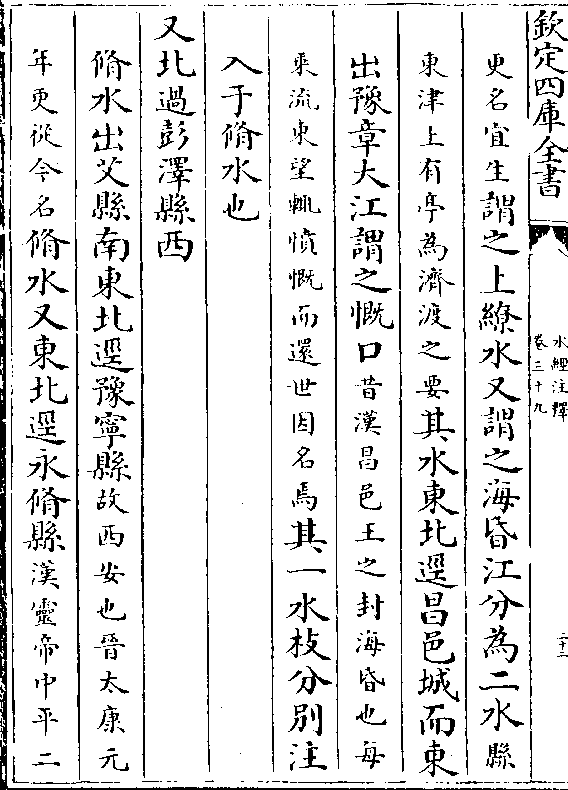 欽定四庫全書
水經注釋
卷三十九
二十二
更名宜生謂之上繚水又謂之海昏江分為二水縣
東津上有亭為濟渡之要其水東北逕昌邑城而東
出豫章大江謂之慨口昔漢昌邑王之封海昏也每
乘流東望輒憤慨而還世因名焉其一水枝分別注
入于脩水也
又北過彭澤縣西
脩水出艾縣南東北逕豫寧縣故西安也晉太康元
年更從今名脩水又東北逕永脩縣漢靈帝中平二